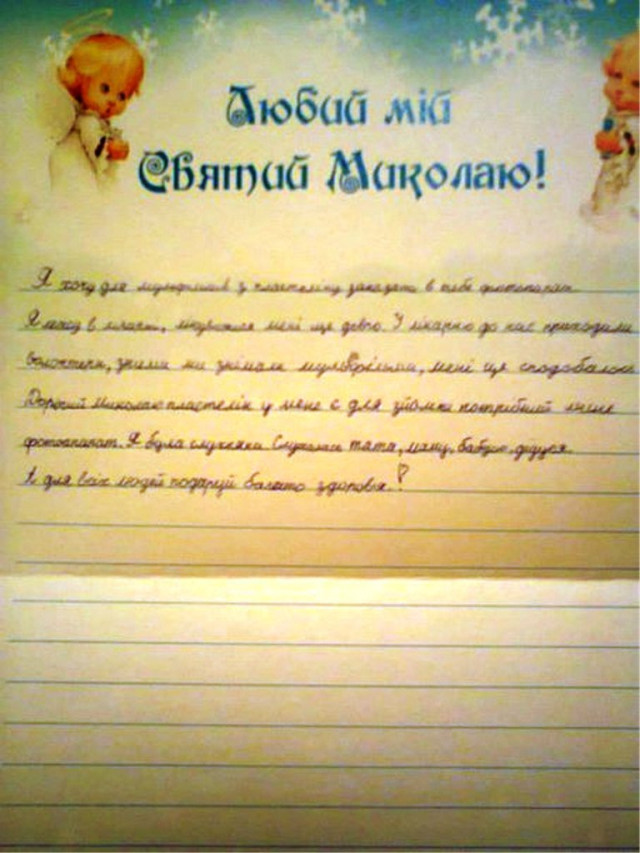 Любий мій
Святий Миколаю!
Я хочу для мультфільмів з пластеліну заказати в тебе фотопарат
Я лежу в лікарні, лікуватися мені ще довго. У лікарню до нас приходили
волонтери, зними ми знімали мультфільми, мені це сподобалося
Дорогий Миколаю пластелін у мене є для зйомки потрібний лише
фотоапарат. Я була слухняна Слухалась тата, маму, бабусю, дідуся.
І для всіх людей подаруй багато здоровя.!